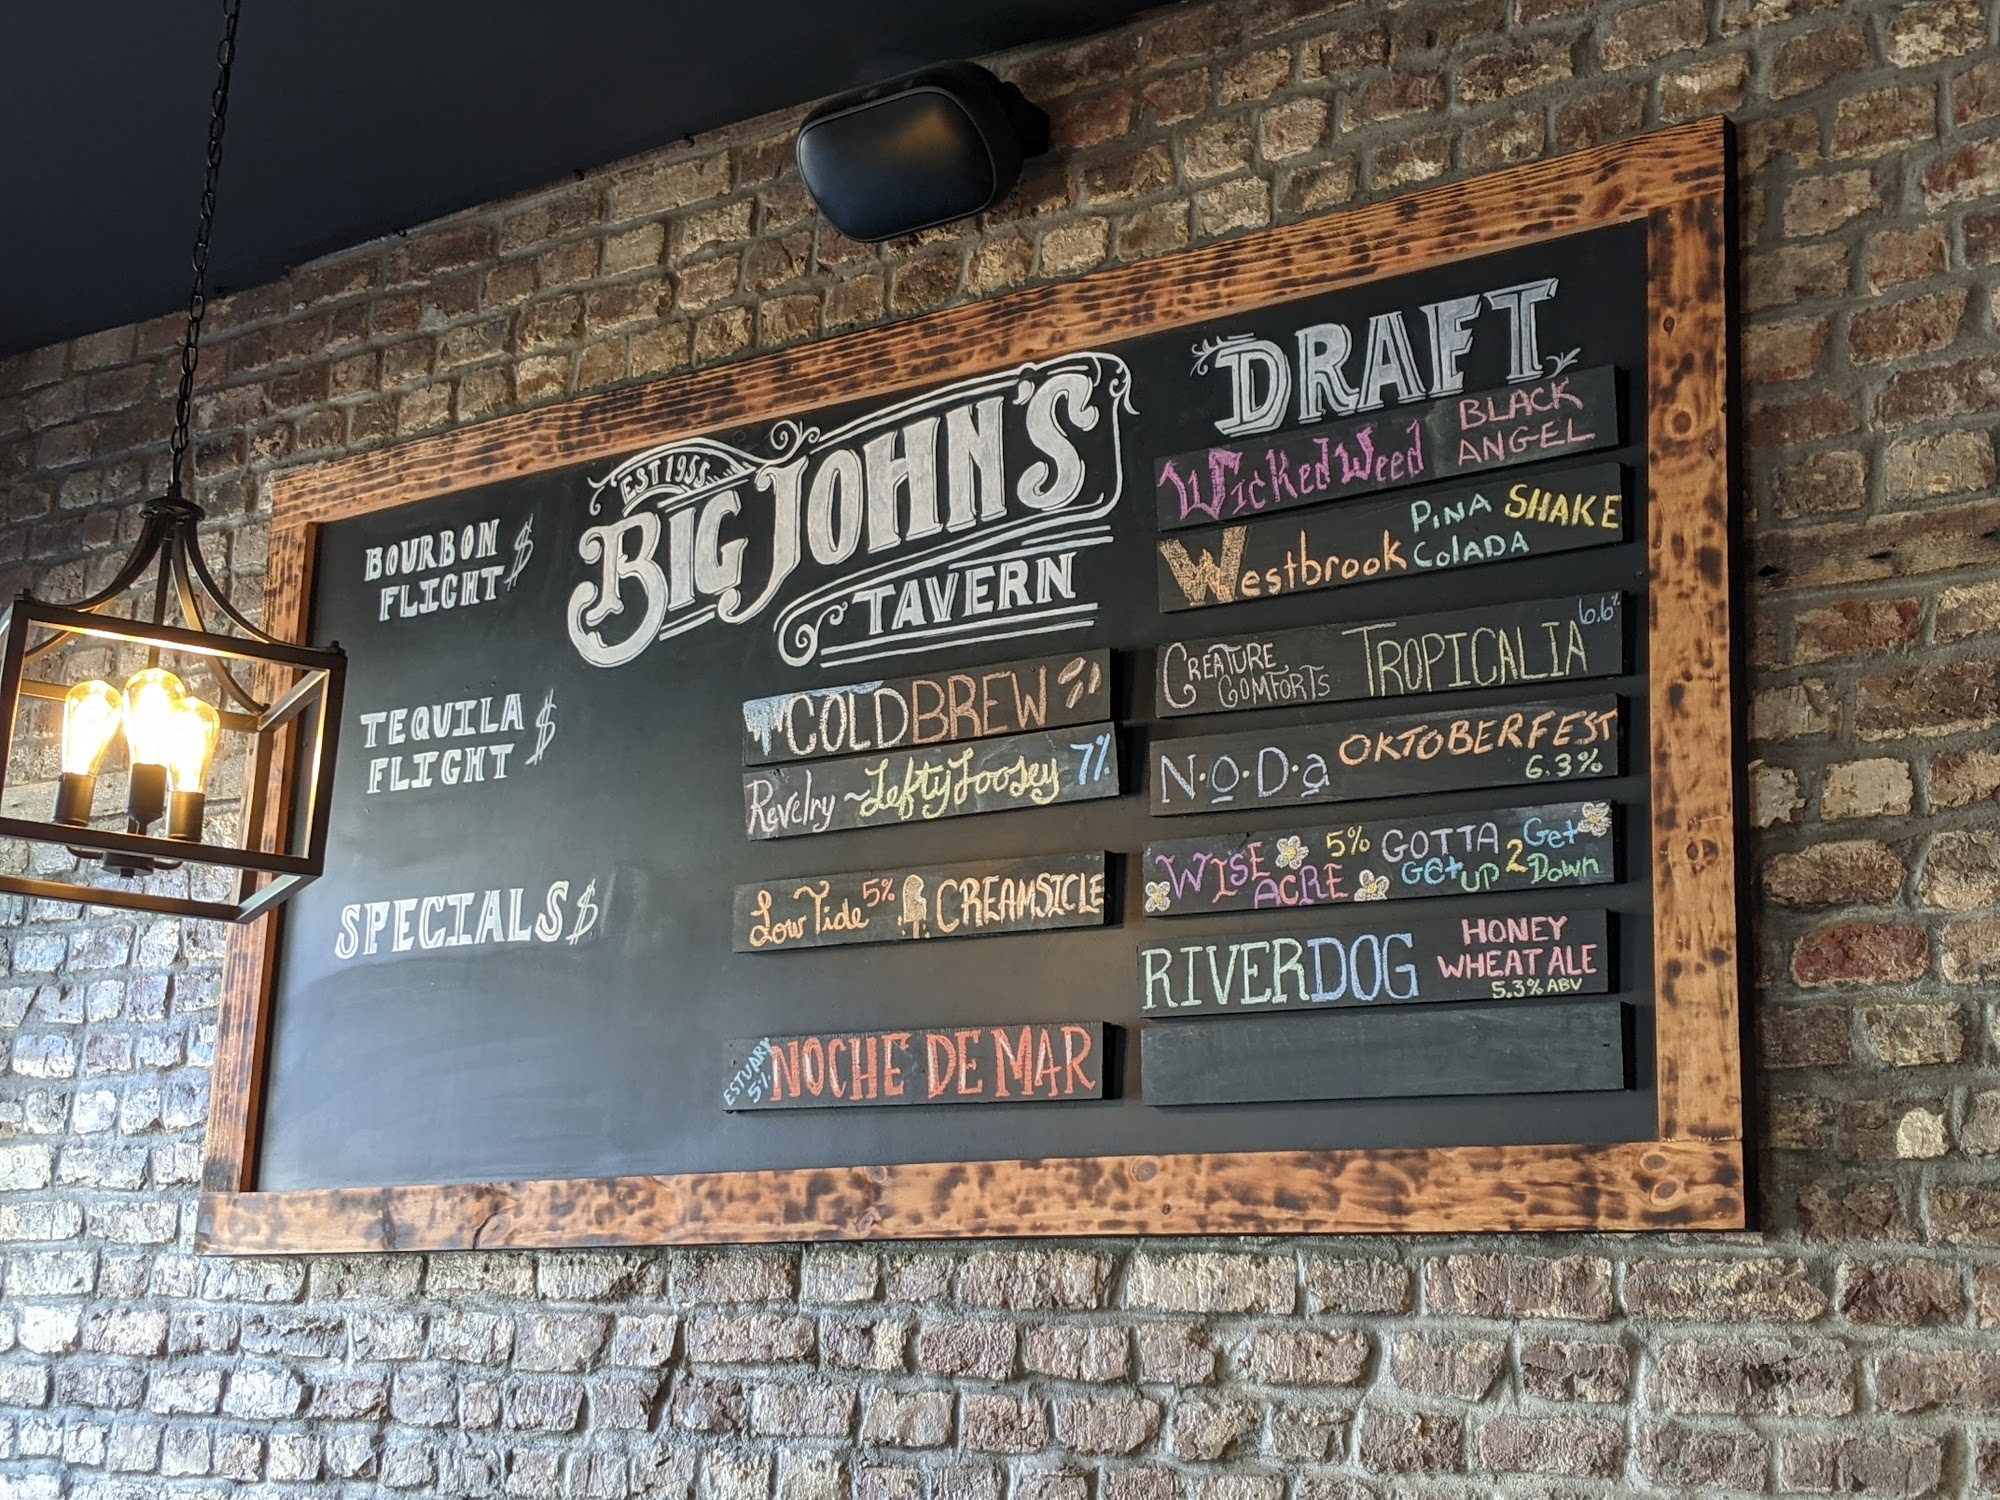 BOURBON $
FLIGHT
TEQUILA $
FLIGHT
SPECIALS $
EST 1955
BIG JOHN'S
TAVERN
COLD BREW
Revelry ~ Lefty Loosey 7%
Low Tide 5% CREAMSICLE
ESTUARY
5%
NOCHE DE MAR
DRAFT
Wicked Weed BLACK
ANGEL
Westbrook PINA SHAKE
COLADA
CREATURE
COMFORTS
TROPICALIA 6.6%
N.O.D.a OKTOBERFEST
6.3%
WISE
ACRE
5% GOTTA 2 Get
Get UP Down
RIVERDOG HONEY
WHEAT ALE
5.3% ABV